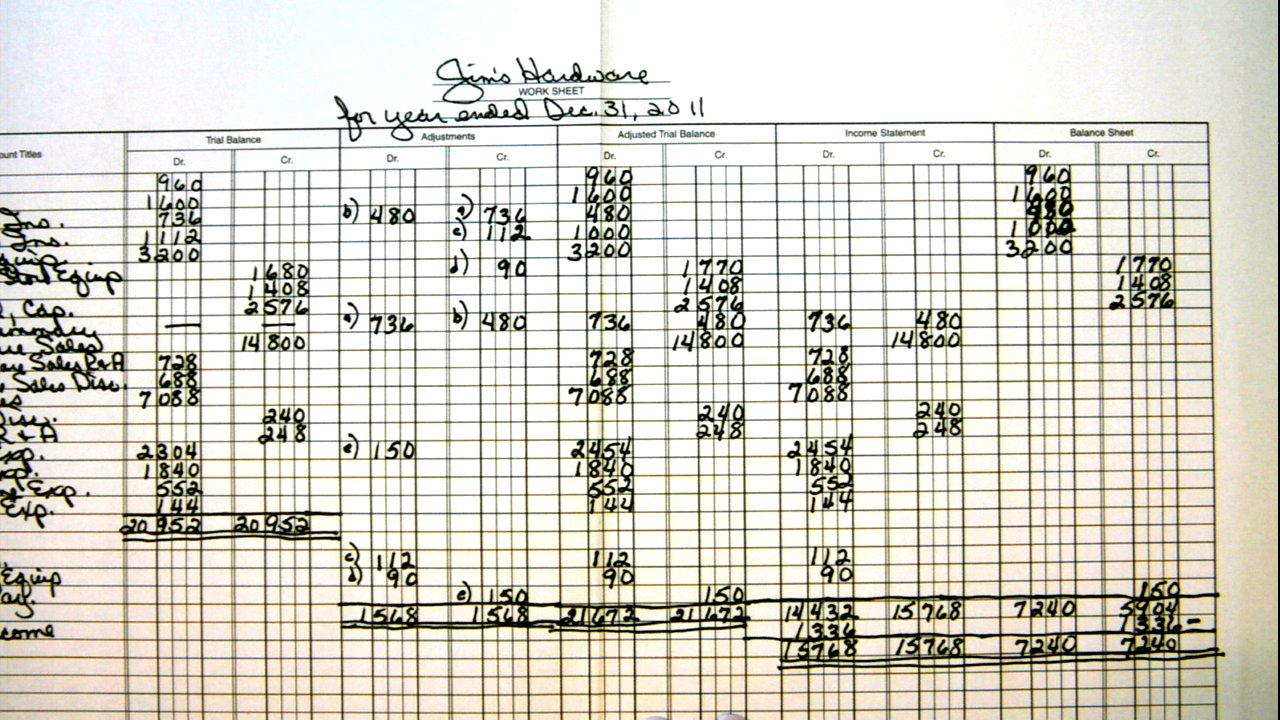 Jim's Hardware
WORK SHEET
for year ended Dec. 31, 2011
ount Titles Trial Balance Adjustments Adjusted Trial Balance Income Statement Balance Sheet
Dr. Cr. Dr. Cr. Dr. Cr. Dr. Cr. Dr. Cr.
960 960 960
1600 1600 1600
Ins. 736 b) 480 a) 736 480 480
Ins. 1112 c) 112 1000 1000
quip. 3200 3200 3200
Store Equip 1680 d) 90 1770 1770
1408 1408 1408
, Cap. 2576 2576 2576
ummary — — a) 736 b) 480 736 480 736 480
are Sales 14800 14800 14800
are Sales R+A 728 728 728
e Sales Disc. 688 688 688
es 7088 7088 7088
Disc. 240 240 240
R+A 248 248 248
Exp. 2304 e) 150 2454 2454
xp. 1840 1840 1840
Exp. 552 552 552
Exp. 144 144 144
20952 20952
c) 112 112 112
Equip d) 90 90 90
ay. e) 150 150 150
1568 1568 21672 21672 14432 15768 7240 5904
come 1336 1336-
15768 15768 7240 7240